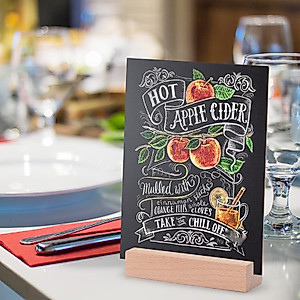 HOT
APPLE CIDER
Mulled with
cinnamon sticks
ORANGE PEEL whole cloves
TAKE THE CHILL OFF